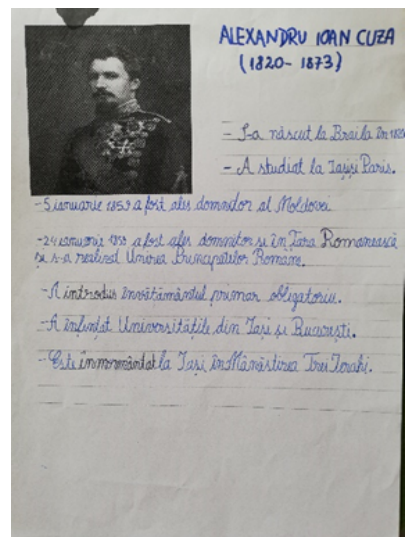 ALEXANDRU IOAN CUZA
(1820-1873)
- S-a născut la Braila în 1820
- A studiat la Iași și Paris.
- 5 ianuarie 1859 a fost ales domnitor al Moldovei
- 24 ianuarie 1859 a fost ales domnitor și în Țara Romanească
și s-a realizat Unirea Principatelor Române.
- A introdus învățământul primar obligatoriu.
- A înființat Universitățile din Iași și București.
- Este înmormântat la Iași în Mânăstirea Trei Ierahi.